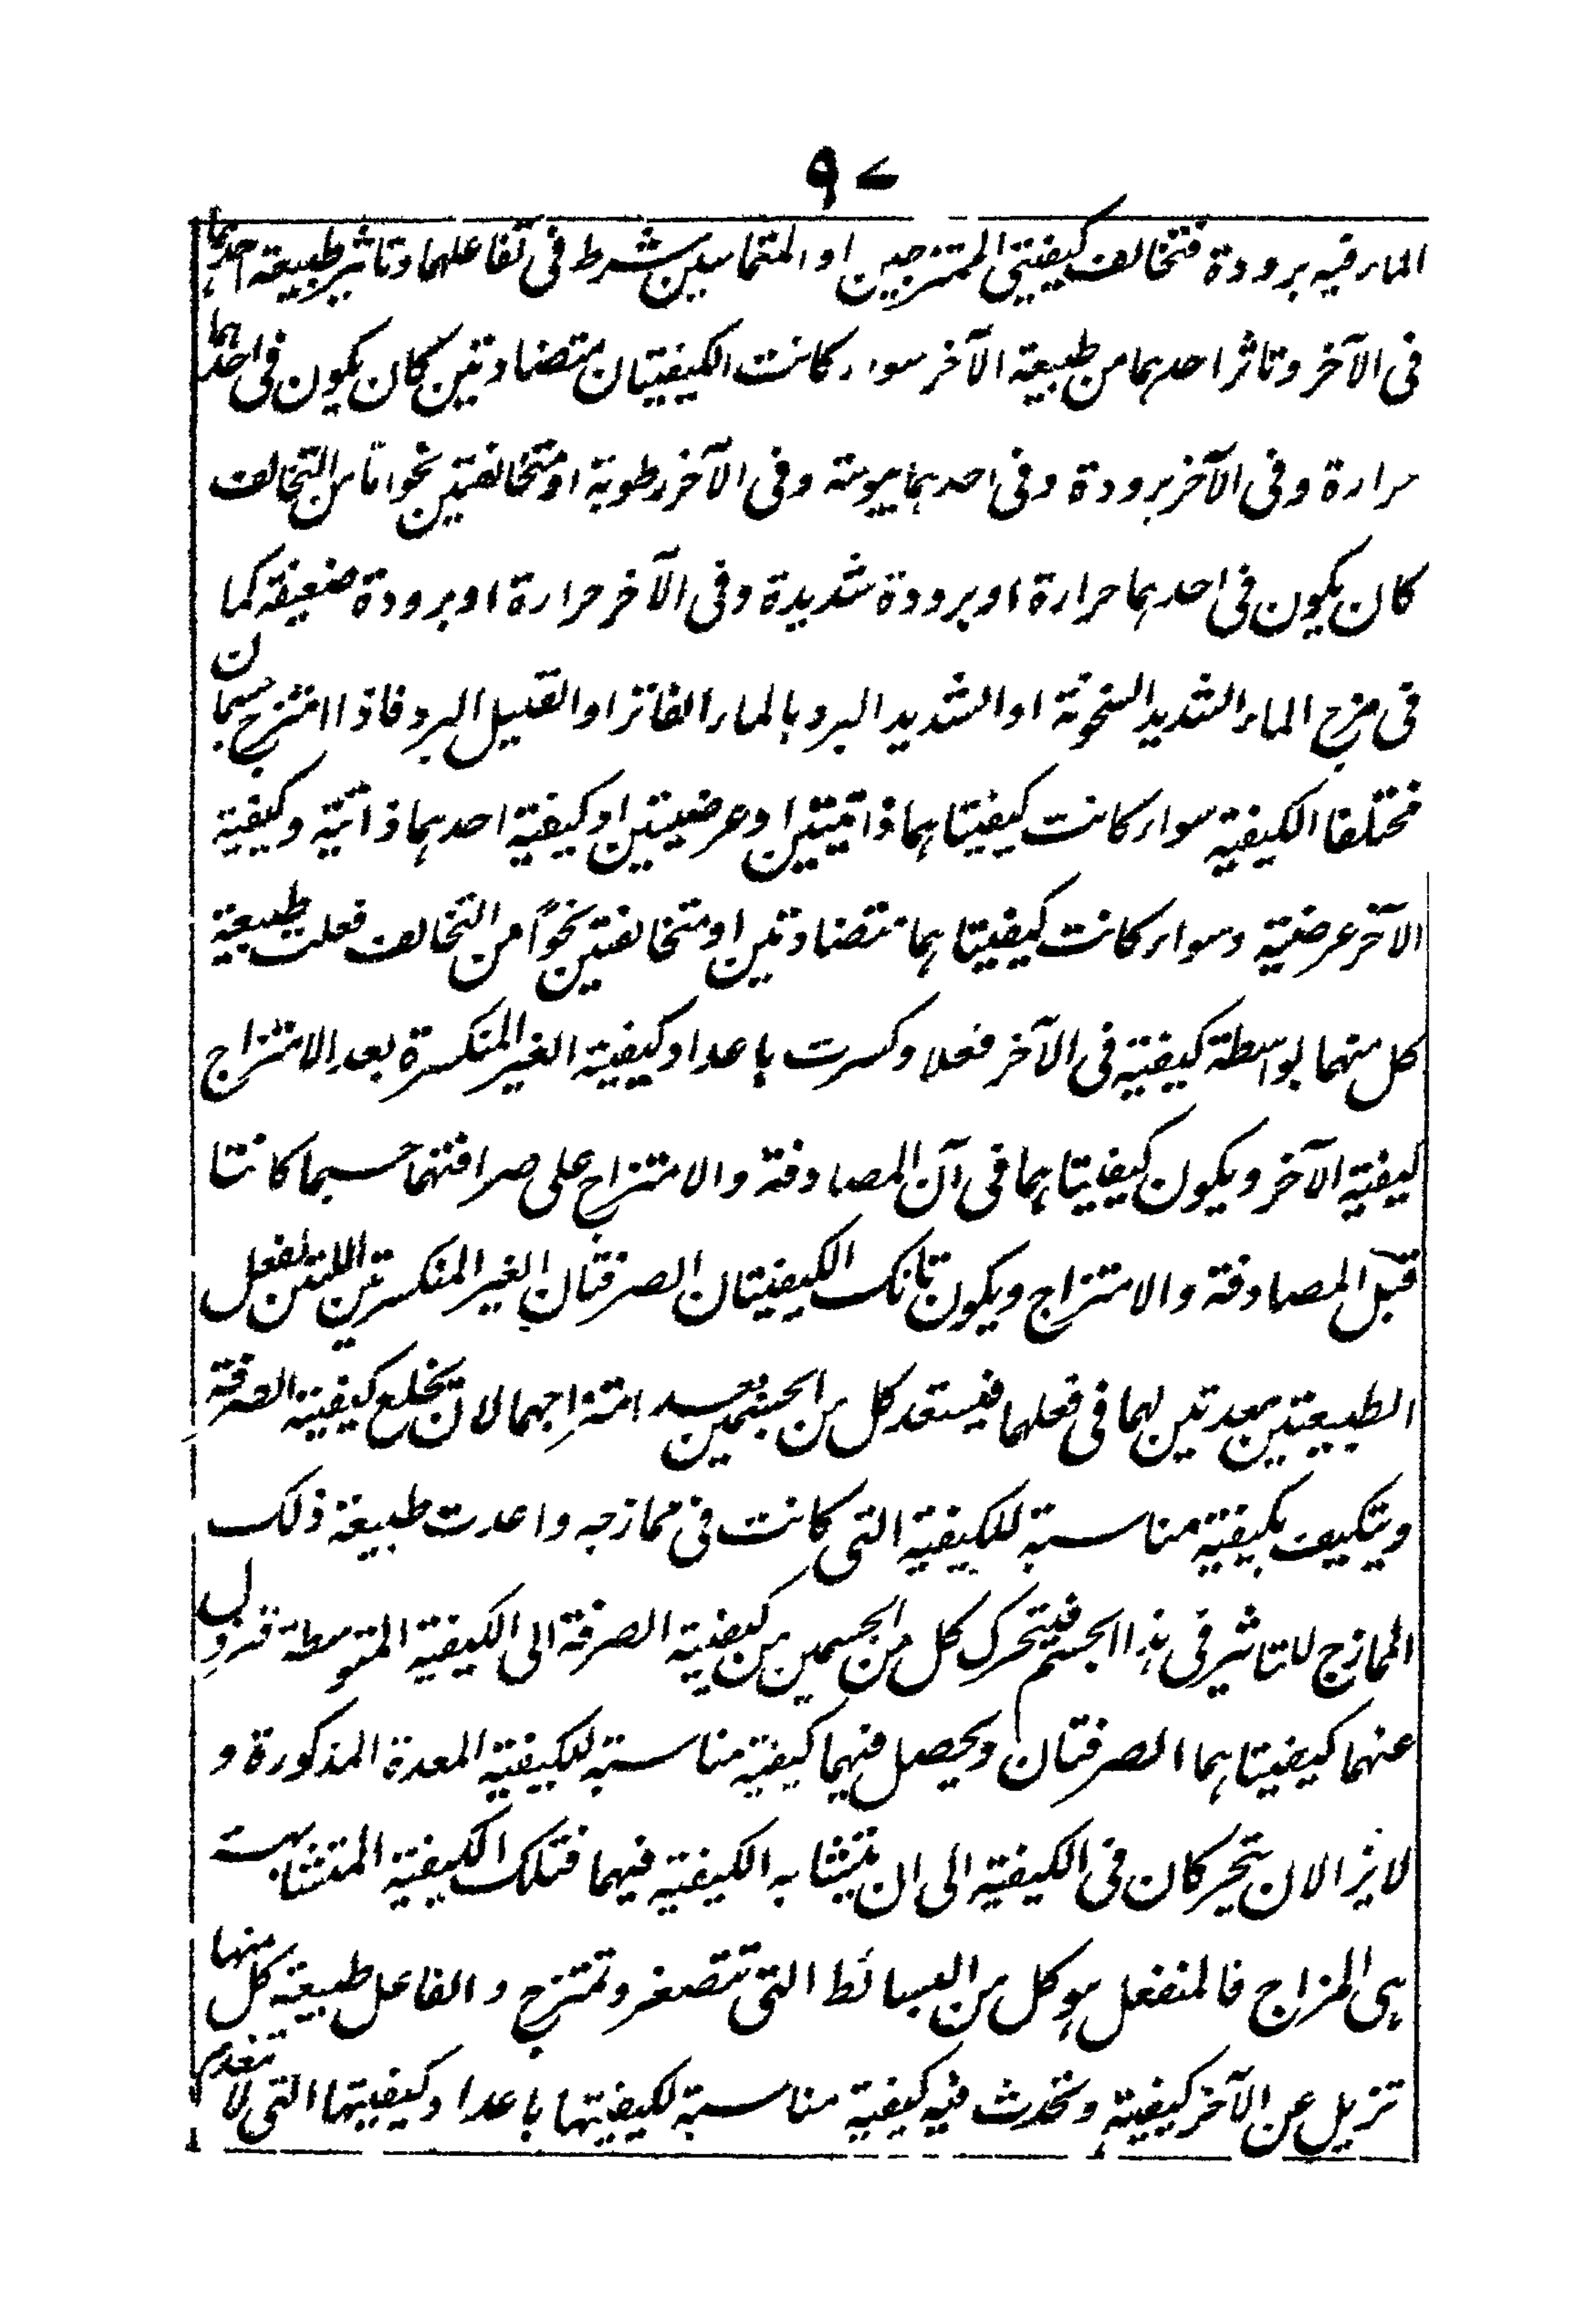 ٩٧
الماء فيه برودة فتخالف كيفيتي الممتزجين او المتماسين شرط في تفاعلهما وتاثير طبيعة احدهما
في الآخر وتاثر احدهما من طبيعة الآخر سواء كانت الكيفيتان متضادتين كان يكون في احدهما
حرارة وفي الآخر برودة وفي احدهما يبوسة وفي الآخر رطوبة او متخالفتين نحوا ما من التخالف
كان يكون في احدهما حرارة او برودة شديدة وفي الآخر حرارة او برودة ضعيفة كما
في مزج الماء الشديد السخونة او الشديد البرد بالماء الفاتر او القليل البرد فاذا امتزج جسمان
مختلفا الكيفية سواء كانت كيفيتاهما ذاتيتين او عرضيتين او كيفية احدهما ذاتية وكيفية
الآخر عرضية وسواء كانت كيفيتاهما متضادتين او متخالفتين نحواً من التخالف فعلت طبيعة
كل منهما بواسطة كيفية في الآخر فعلا وكسرت باعداد كيفية الغير المنكسرة بعد الامتزاج
كيفية الآخر ويكون كيفيتاهما في آن المصادفة والامتزاج على صرافتهما حسبما كانتا
قبل المصادفة والامتزاج ويكون تانك الكيفيتان الصرفتان الغير المنكسرتين اللتين لفعل
الطبيعتين معدتين لهما في فعلهما فيستعد كل من الجسمين بعد امتزاجهما لان تخلع كيفية الصرفة
ويتكيف بكيفية مناسبة للكيفية التي كانت في ممازجه واعدت طبيعة ذلك
الممازج للتاثير في هذا الجسم فيتحرك كل من الجسمين من كيفية الصرفة الى الكيفية المتوسطة فتزول
عنهما كيفيتاهما الصرفتان ويحصل فيهما كيفية مناسبة للكيفية المعدة المذكورة و
لا يزالان يتحركان في الكيفية الى ان يتشابه الكيفية فيهما فتلك الكيفية المتشابهة
هي المزاج فالمنفعل هو كل من البسائط التي تتصغر وتمتزج والفاعل طبيعة كل منها
تزيل عن الآخر كيفية وتحدث فيه كيفية مناسبة لكيفيتها باعداد كيفيتها التي لا تنعدم